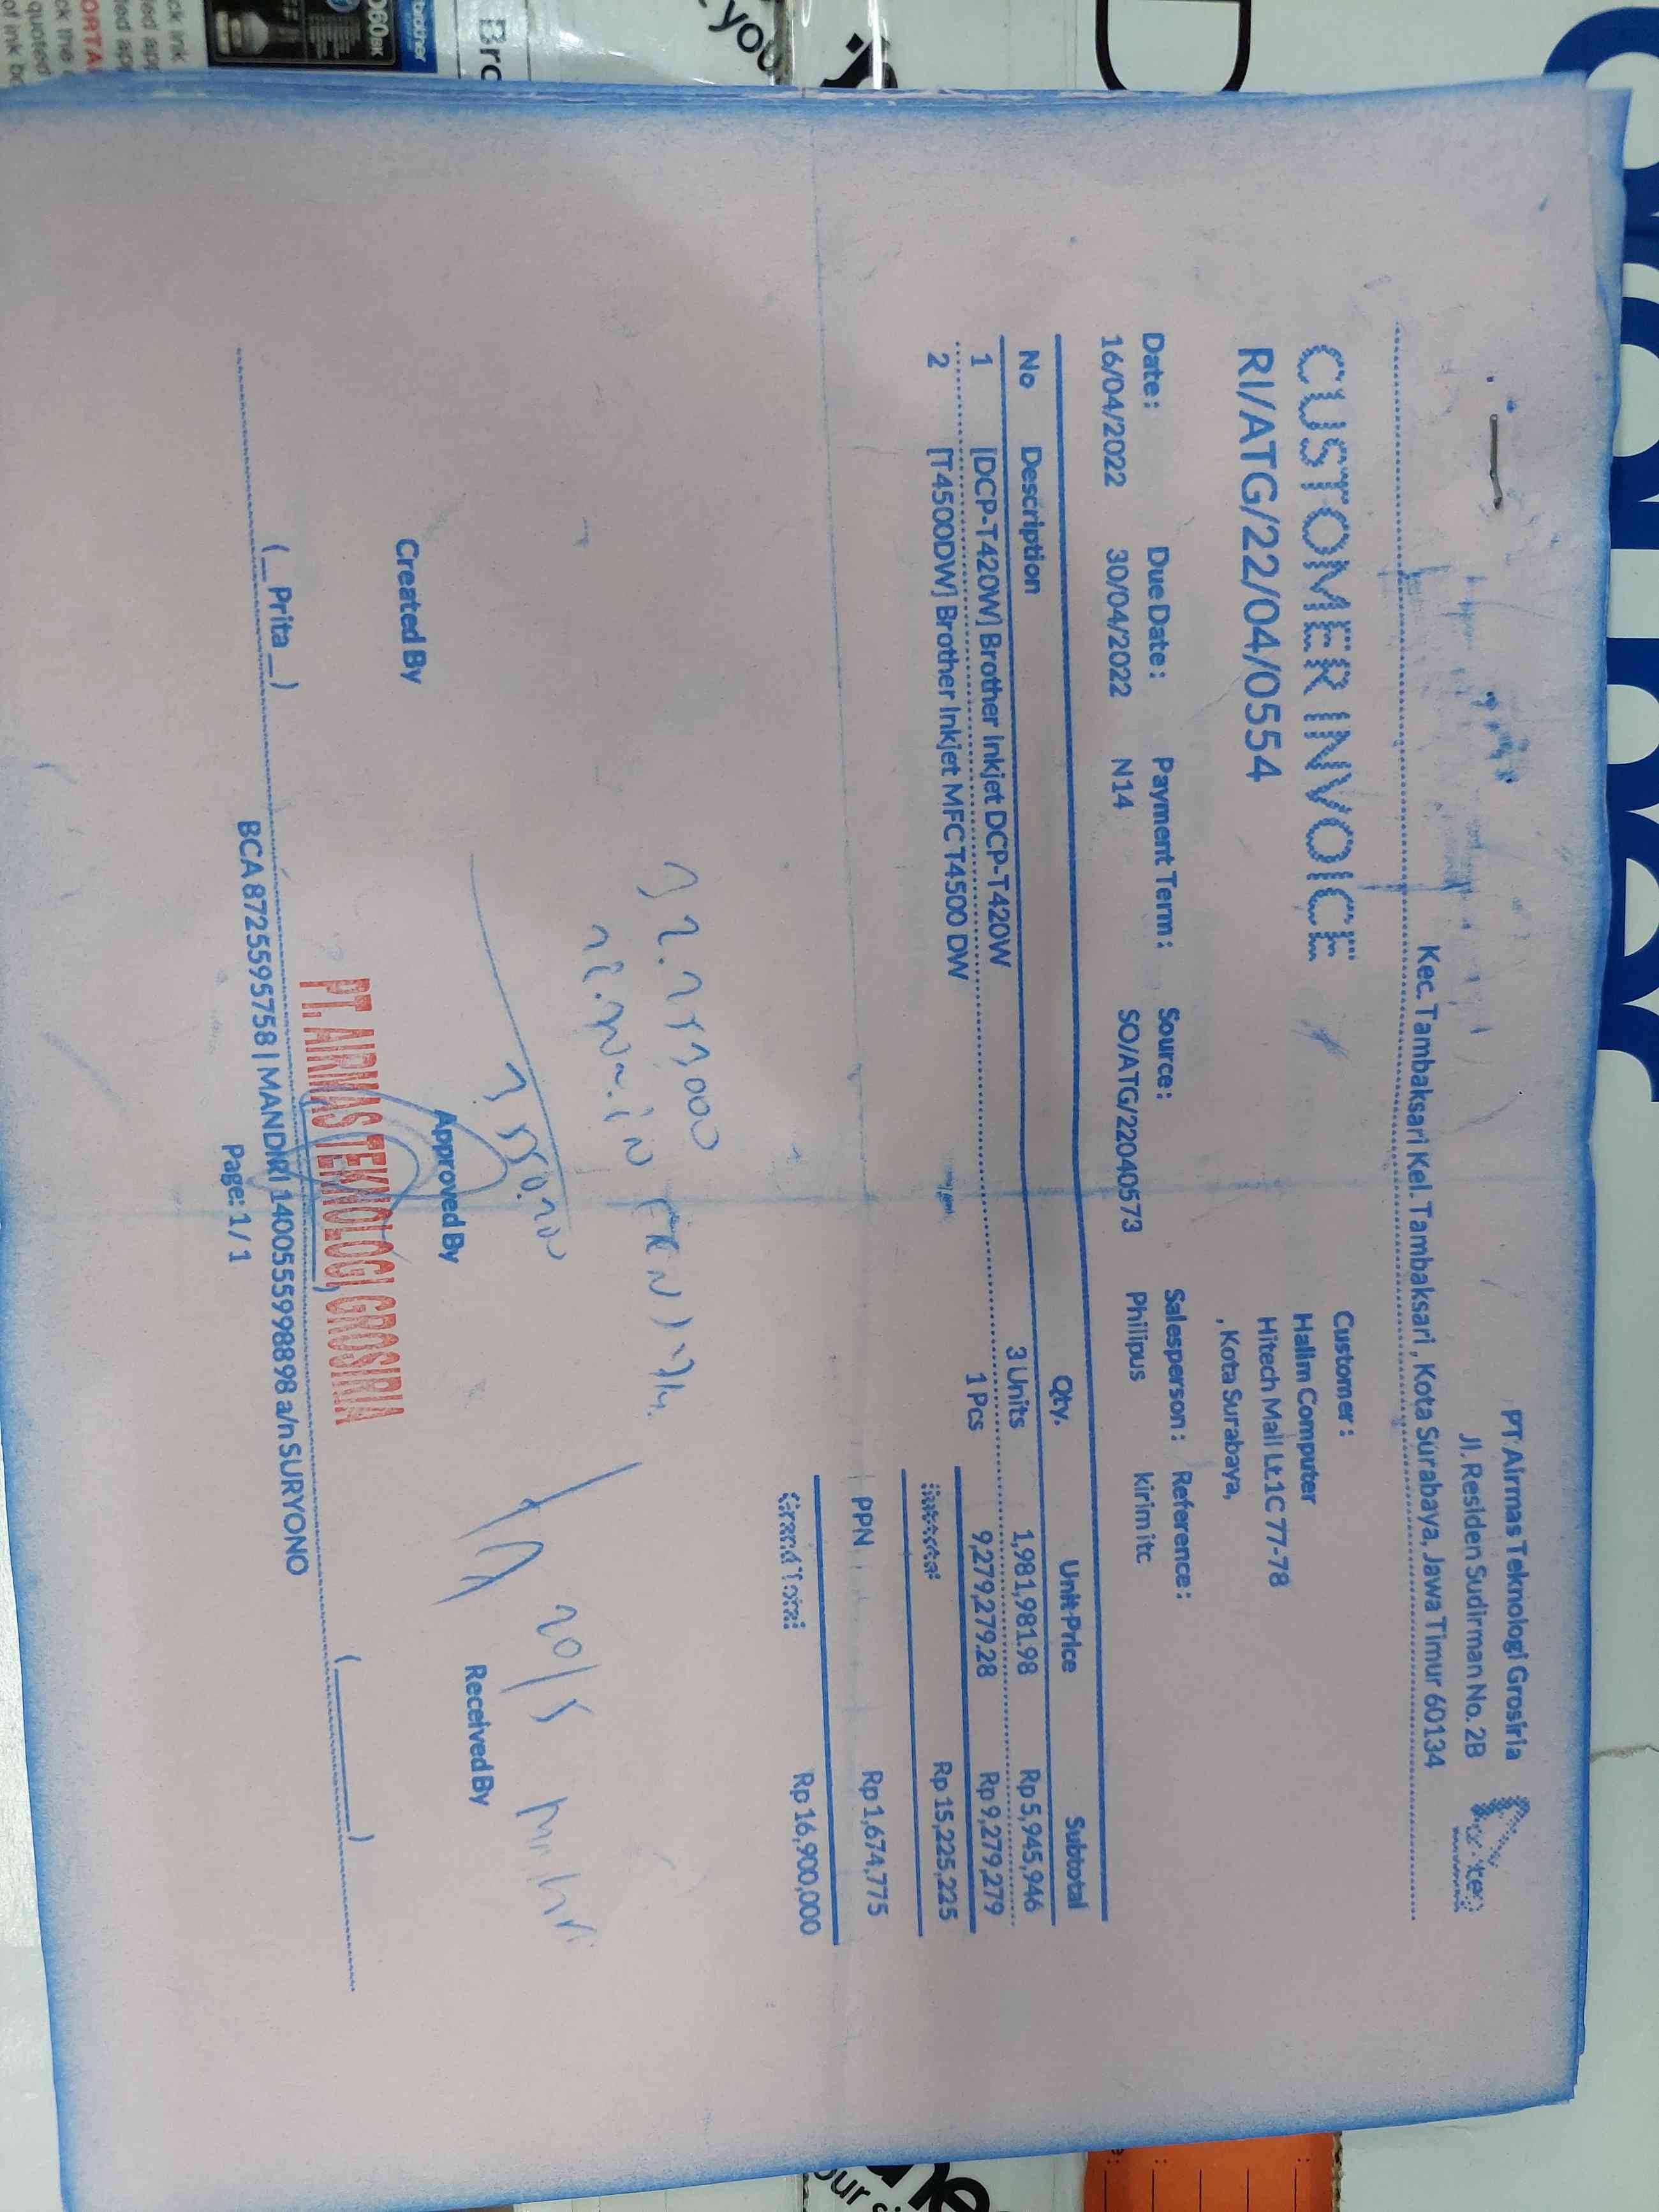 PT Airmas Teknologi Grosiria
Jl. Residen Sudirman No. 2B
Kec. Tambaksari Kel. Tambaksari , Kota Surabaya, Jawa Timur 60134
CUSTOMER INVOICE
RI/ATG/22/04/0554
Customer :
Halim Computer
Hitech Mall Lt.1 C 77-78
, Kota Surabaya,
Date : Due Date : Payment Term : Source : Salesperson : Reference :
16/04/2022 30/04/2022 N14 SO/ATG/22040573 Philipus kirim itc
No Description Qty. Unit Price Subtotal
1 [DCP-T420W] Brother Inkjet DCP-T420W 3 Units 1,981,981.98 Rp 5,945,946
2 [T4500DW] Brother Inkjet MFC T4500 DW 1 Pcs 9,279,279.28 Rp 9,279,279
Subtotal Rp 15,225,225
PPN Rp 1,674,775
Grand Total Rp 16,900,000
20/5
Created By Approved By Received By
PT. AIRMAS TEKNOLOGI GROSIRIA
(__Prita__)
BCA 8725595758 | MANDIRI 1400555998898 a/n SURYONO
Page: 1 / 1
brother